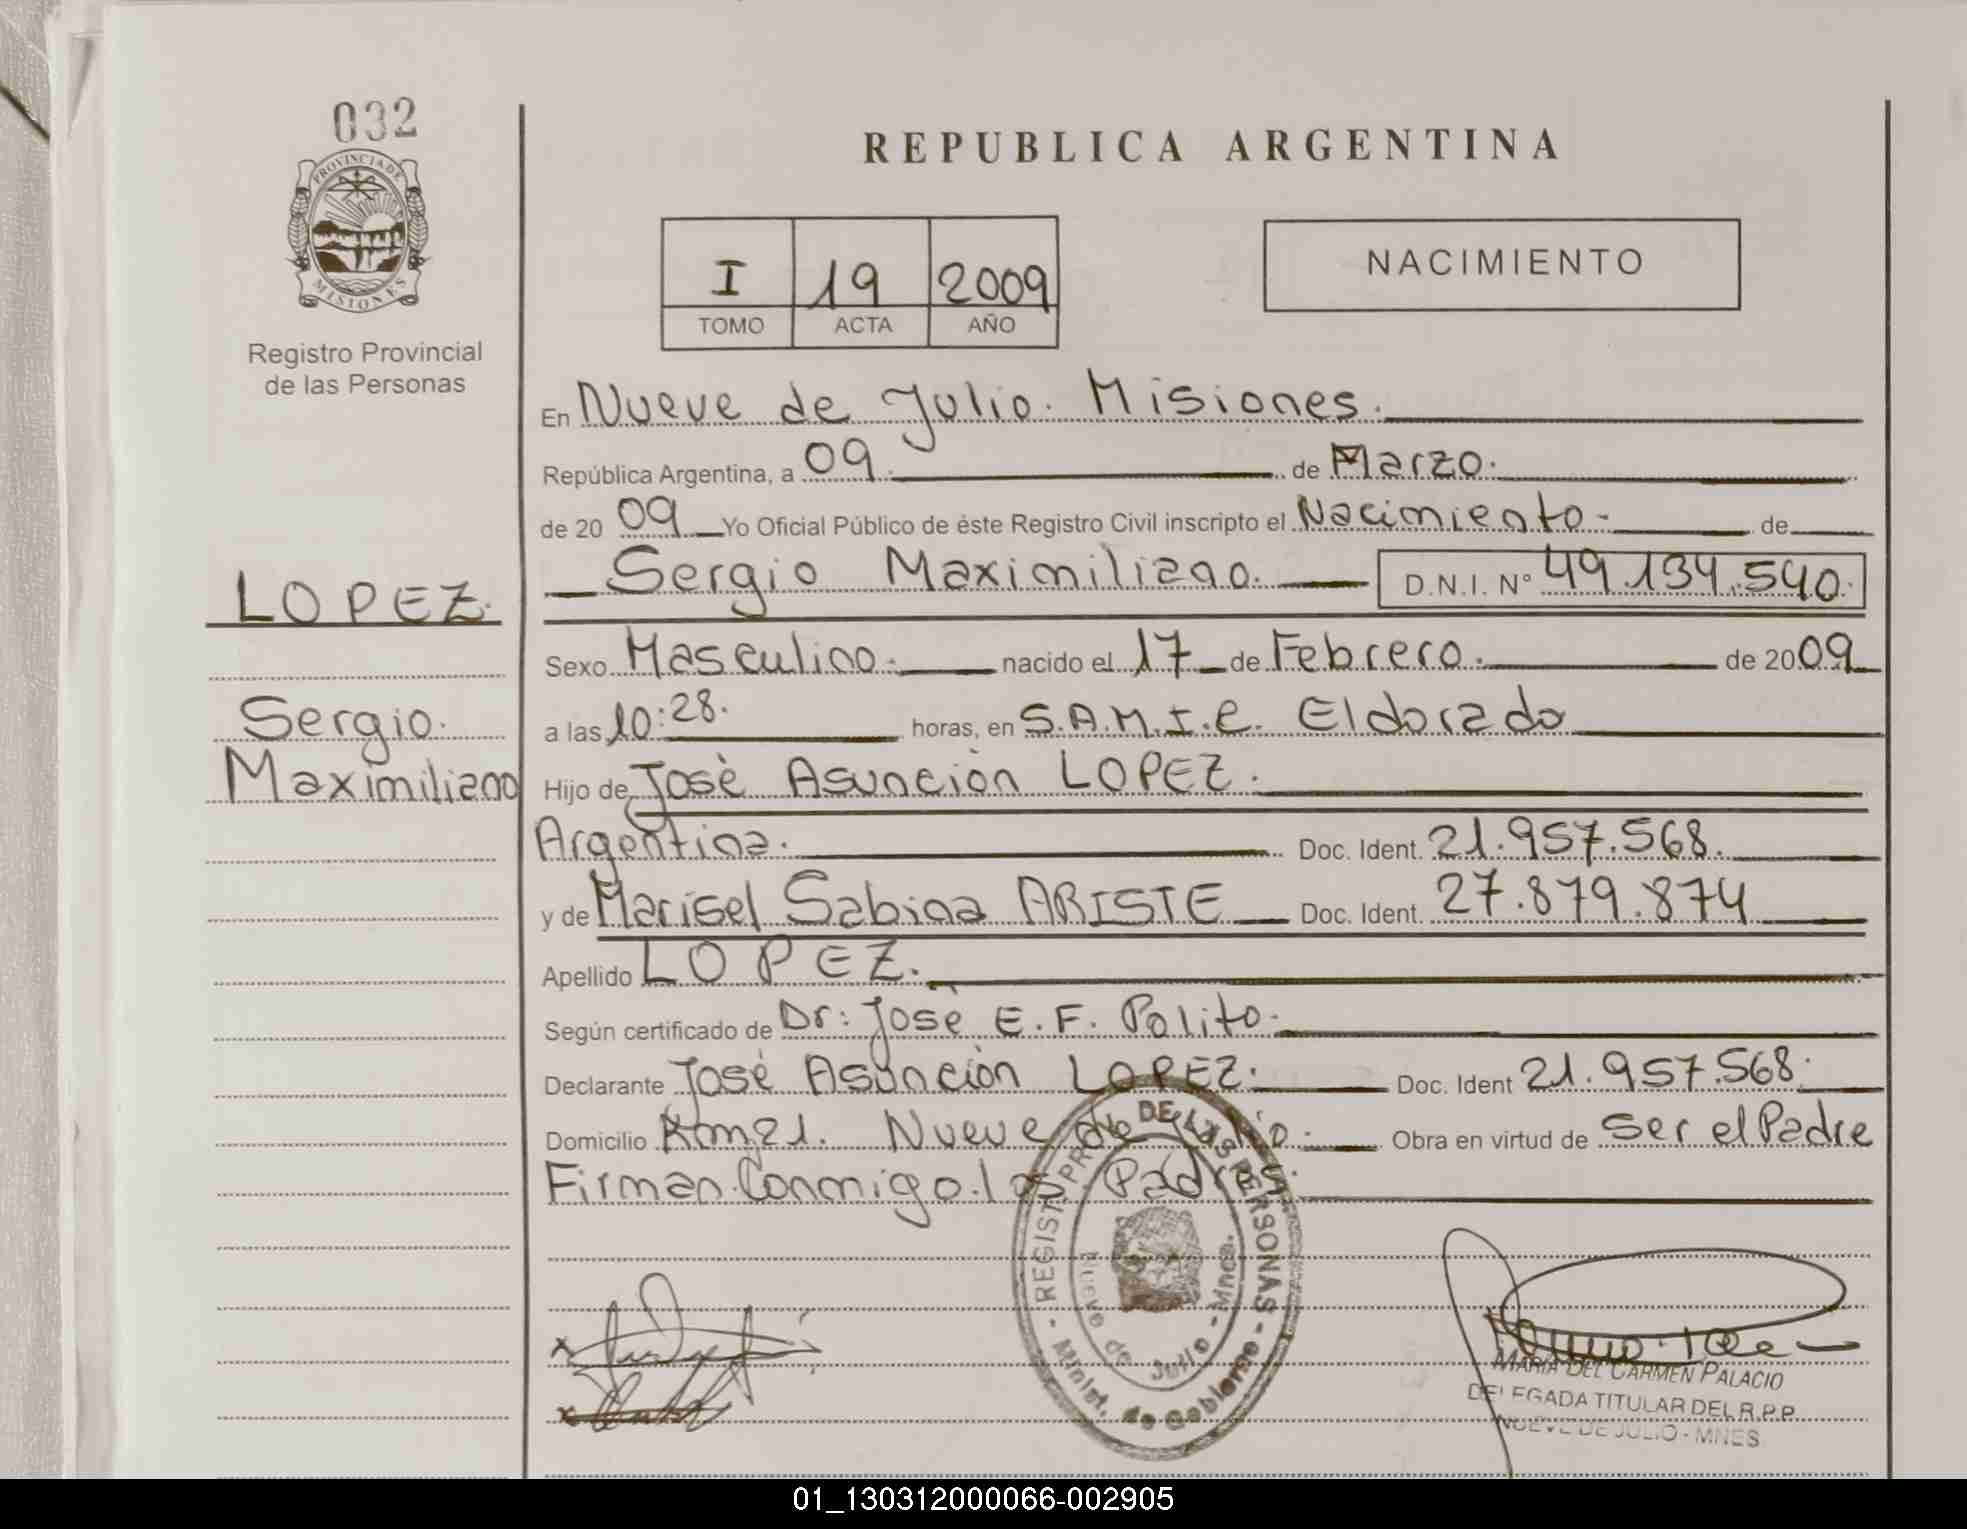 032
PROVINCIA DE
MISIONES
Registro Provincial
de las Personas
LOPEZ.
Sergio.
Maximiliano
REPUBLICA ARGENTINA
I 19 2009
TOMO ACTA AÑO
NACIMIENTO
En Nueve de Julio. Misiones.
República Argentina, a 09. de Marzo.
de 20 09 Yo Oficial Público de éste Registro Civil inscripto el Nacimiento- de
Sergio Maximiliano. D.N.I. Nº 49.134.540.
Sexo Masculino. nacido el 17 de Febrero. de 20 09
a las 10:28. horas, en S.A.M.I.C. Eldorado
Hijo de Josè Asunciòn LOPEZ.
Argentina. Doc. Ident. 21.957.568.
y de Marisel Sabina ARISTE Doc. Ident. 27.879.874
Apellido LOPEZ.
Según certificado de Dr: José E. F. Polito.
Declarante José Asunciòn LOPEZ. Doc. Ident 21.957.568.
Domicilio Km 21. Nueve de Julio. Obra en virtud de ser el Padre
Firman Conmigo los Padres.
- REGIST. PROV. DE LAS PERSONAS -
Minist. de Gobierno
Nueve de Julio - Mnes.
MARIA DEL CARMEN PALACIO
DELEGADA TITULAR DEL R.P.P
NUEVE DE JULIO - MNES
01_130312000066-002905